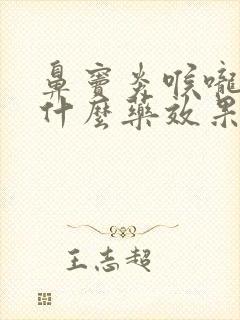 鼻竇炎喉嚨
什麼藥效果
王志超